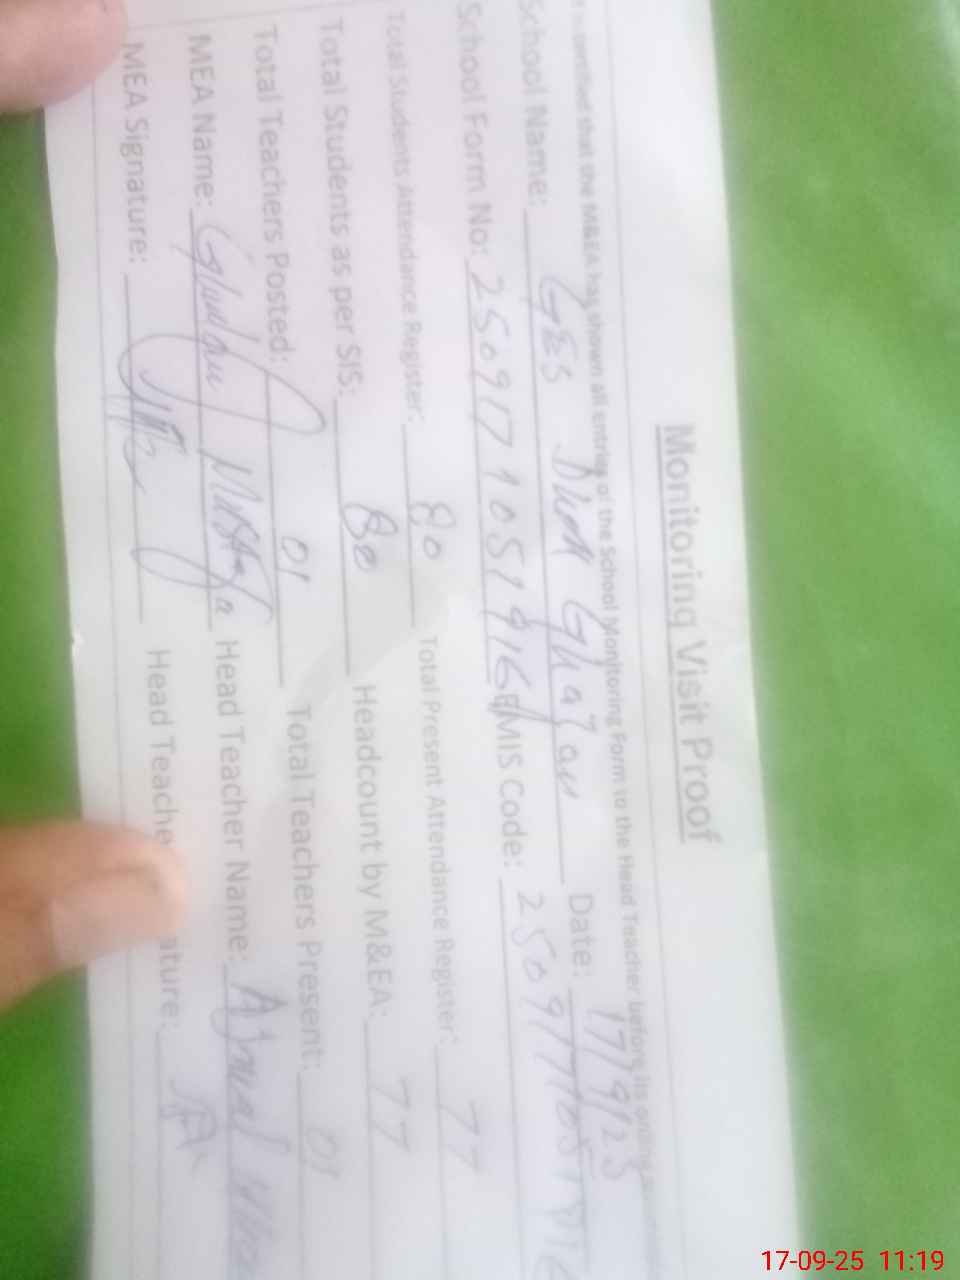 Monitoring Visit Proof
It is certified that the M&EA has shown all entries of the School Monitoring Form to the Head Teacher before its online
School Name: GES Dhed Ghazan Date: 17/9/25
School Form No: 25097 1051916 EMIS Code: 25097
Total Students Attendance Register: 80 Total Present Attendance Register: 77
Total Students as per SIS: 80 Headcount by M&EA: 77
Total Teachers Posted: 01 Total Teachers Present: 01
MEA Name: Ghulam Mustafa Head Teacher Name: Ajmal
MEA Signature: Head Teacher ature:
17-09-25 11:19